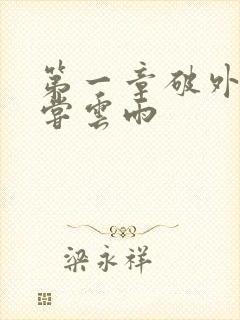 第一章破外
嘗雲雨
梁永祥